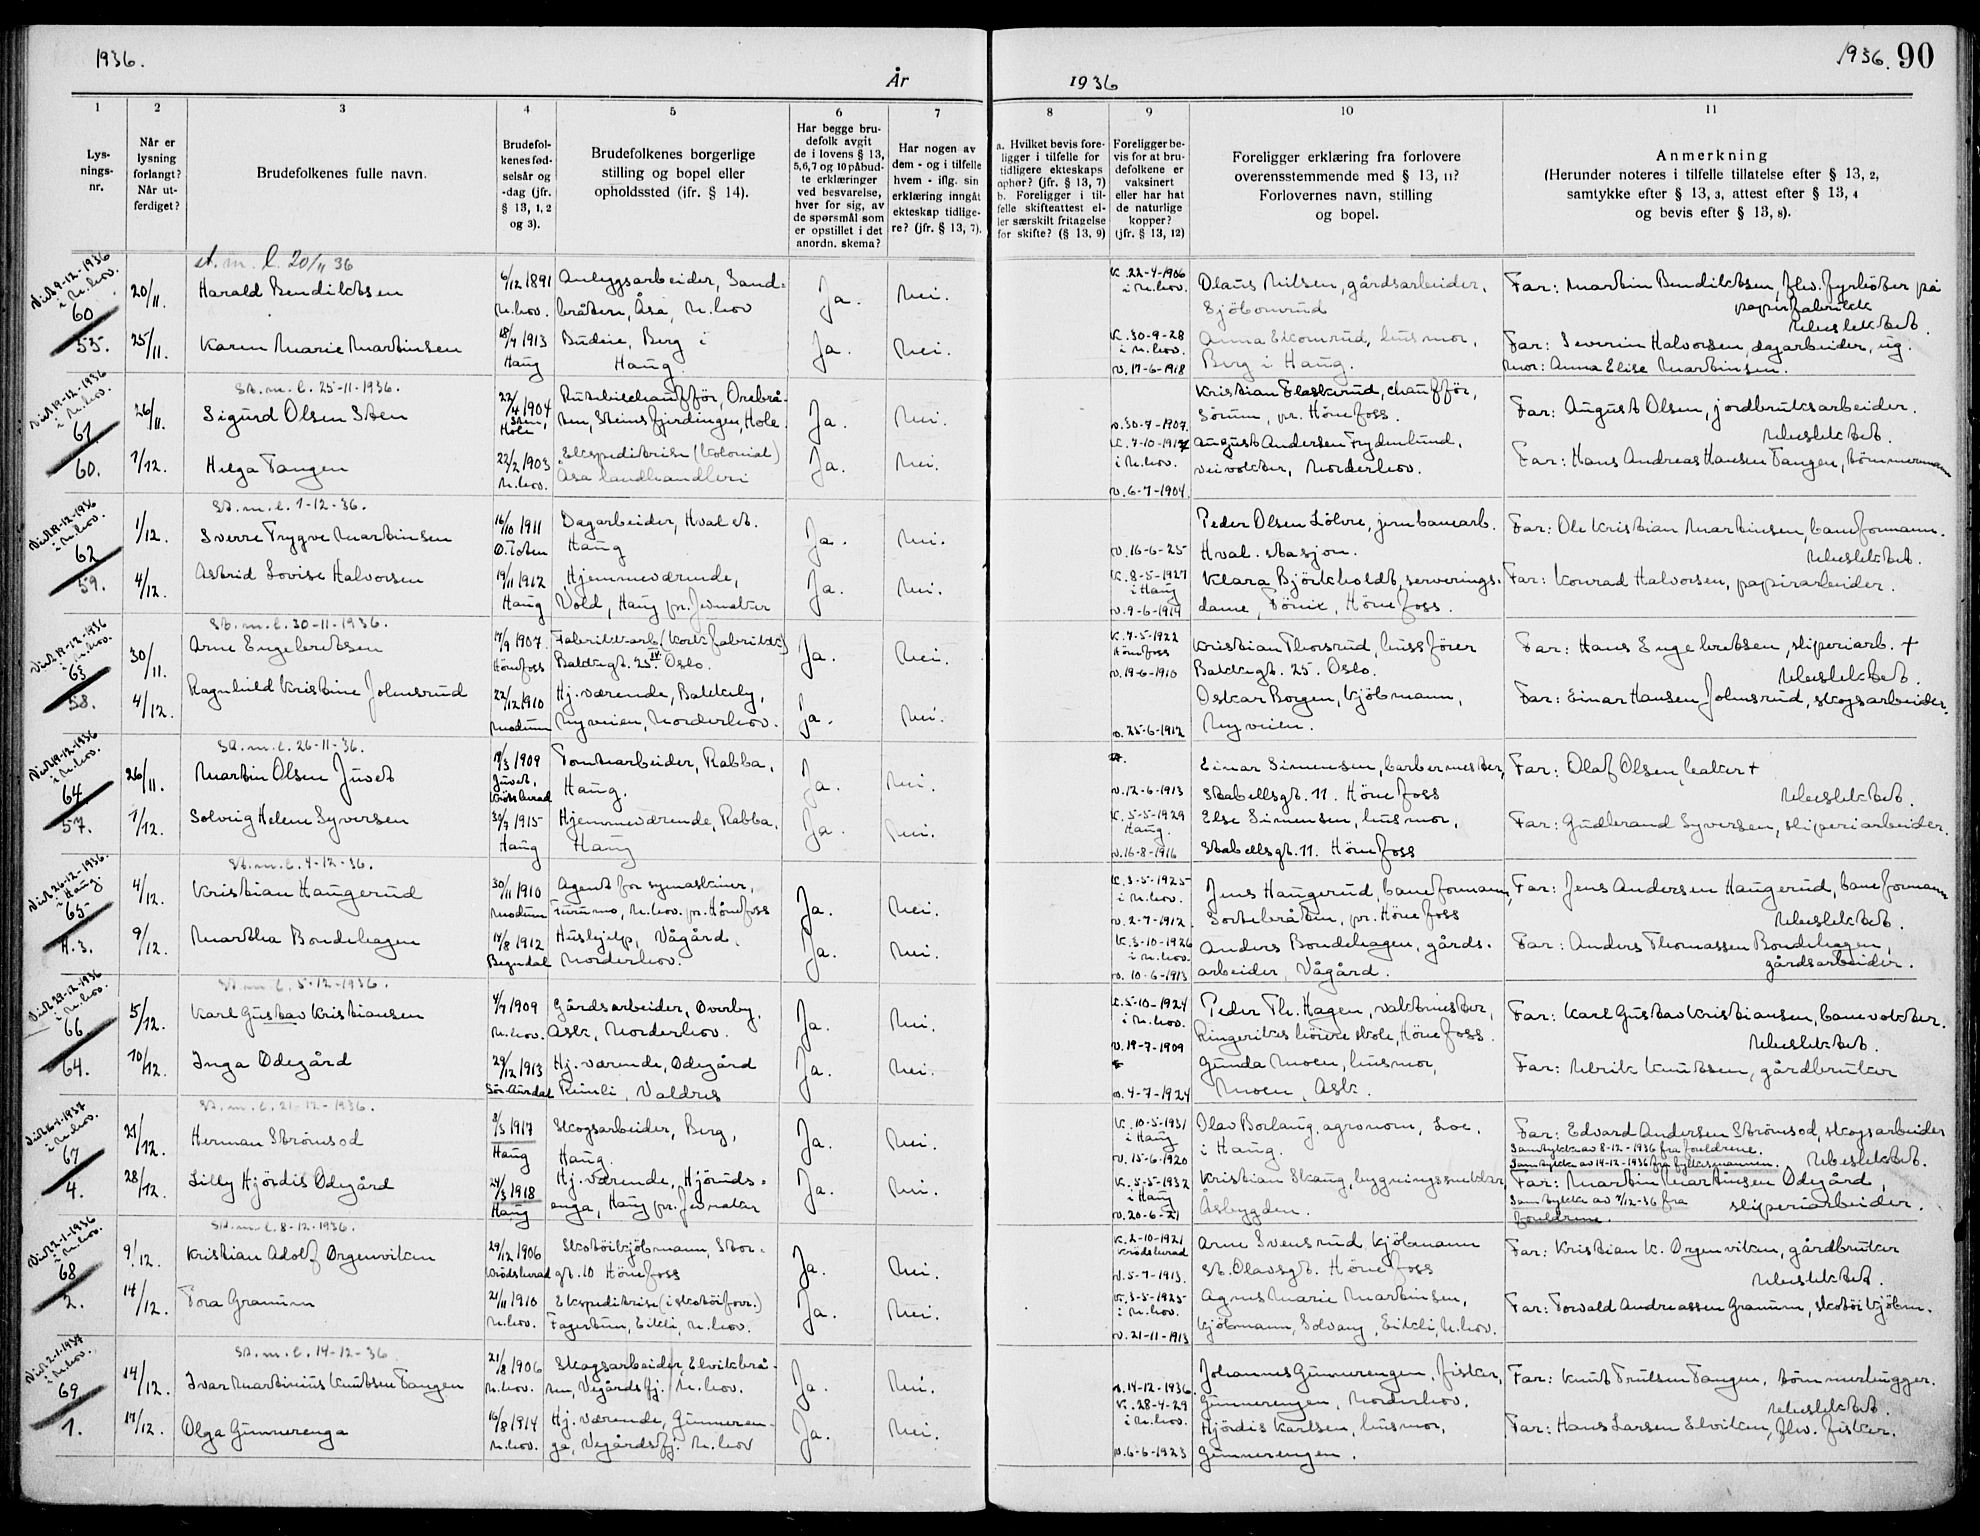 1936.
År
1936
1936. 90
1 2 3 4 5 6 7 8 9 10 11
Lys-
nings-
nr.
Når er
lysning
forlangt?
Når ut-
ferdiget?
Brudefolkenes fulle navn.
Brudefol-
kenes fød-
selsår og
-dag (jfr.
§ 13, 1, 2
og 3).
Brudefolkenes borgerlige
stilling og bopel eller
opholdssted (jfr. § 14).
Har begge bru-
defolk avgit
de i lovens § 13,
5,6,7 og 10 påbud-
te erklæringer
ved besvarelse,
hver for sig, av
de spørsmål som
er opstillet i det
anordn. skema?
Har nogen av
dem - og i tilfelle
hvem - iflg. sin
erklæring inngåt
ekteskap tidlige-
re? (jfr. § 13, 7).
a. Hvilket bevis fore-
ligger i tilfelle for
tidligere ekteskaps
ophør? (jfr. § 13, 7)
b. Foreligger i til-
felle skifteattest el-
ler særskilt fritagelse
for skifte? (§ 13, 9)
Foreligger be-
vis for at bru-
defolkene er
vaksinert
eller har hat
de naturlige
kopper?
(jfr. § 13, 12)
Foreligger erklæring fra forlovere
overensstemmende med § 13, 11?
Forlovernes navn, stilling
og bopel.
Anmerkning
(Herunder noteres i tilfelle tillatelse efter § 13, 2,
samtykke efter § 13, 3, attest efter § 13, 4
og bevis efter § 13, 8).
Viet 9-12-1936
i N.hov.
60
55.
20/11
25/11.
st. m. l. 20/11 36
Harald Bendiktsen
6/12 1891
N.hov.
Anleggsarbeider, Sand-
bråten, Åsa, N.hov
Ja.
Nei.
K. 22-4-1906
i N.hov.
Olaus Nilsen, gårdsarbeider,
Sjöbonrud
Far: Martin Bendiktsen, flv. fyrbøter på
papirfabrikk
Ubeslektet.
Karen Marie Martinsen
18/7 1913
Haug
Budeie, Berg i
Haug.
Ja.
Nei.
K. 30-9-28
i N.hov.
v. 17-6-1918
Anna Elsrud, husmor,
Berg i Haug.
Far: Severin Halvorsen, dagarbeider, ug.
Mor: Anna Elise Martinsen.
Viet 19-12-1936
i N.hov.
61
60.
26/11.
1/12.
St. m. l. 25-11-1936.
Sigurd Olsen Sten
22/4 1904
Sten,
Hole
Rutebilchauffør, Örebrå-
ten, Steinsfjerdingen, Hole.
Ja.
Nei.
v. 30-7-1907.
Kristian Flaskerud, chauffför,
Sørum, pr. Hönefoss.
Far: August Olsen, jordbruksarbeider.
Ubeslektet.
Helga Tangen
22/2 1903
N.hov.
Ekspeditrise (Kolonial)
Åsa landhandleri
Ja.
Nei.
K. 7-10-1917
i N.hov.
v. 6-7-1904.
August Andersen Frydenlund,
veivokter, Norderhov.
Far: Hans Andreas Hansen Tangen, tömmermann
Viet 19-12-1936
i N.hov.
62
59.
1/12.
4/12.
St. m. l. 1-12-36.
Sverre Trygve Martinsen
16/10 1911
Ø.Toten
Dagarbeider, Hval st.
Haug
Ja.
Nei.
v. 16-6-25
Peder Olsen Löbre, jernbanearb.
Hval. stasjon.
Far: Ole Kristian Martinsen, baneformann.
Ubeslektet.
Astrid Lovise Halvorsen
19/11 1912
Haug
Hjemmeværende,
Vold, Haug pr. Jevnaker
Ja.
Nei.
K. 8-5-1927
i Haug
v. 9-6-1914
Klara Björkholdt, serverings-
dame, Fönix, Hönefoss.
Far: Konrad Halvorsen, papirarbeider.
Viet 19-12-1936
i N.hov.
63
58.
30/11.
4/12.
St. m. l. 30-11-1936.
Arne Engebretsen
17/9 1907
Hönefoss
Fabrikkarb. (Korkfabrikk)
Bakkegt. 25 IV Oslo.
Ja.
Nei.
K. 7-5-1922
Hönefoss
v. 19-6-1910
Kristian Thorsrud, bussfører
Bakkegt. 25. Oslo.
Far: Hans Engebretsen, sliperiarb. +
Ubeslektet.
Ragnhild Kristine Johnsrud
22/12 1910
Modum
Hj. værende, Bakkely,
Nyveien, Norderhov.
Ja.
Nei.
v. 25-6-1912
Oskar Borgen, kjöbmann,
Nyveien.
Far: Einar Hansen Johnsrud, skogsarbeider.
Viet 19-12-1936
i N.hov.
64
57.
26/11.
1/12.
St. m. l. 26-11-36.
Martin Olsen Juvet
9/3 1909
Juvet,
Krödsherad
Tomtearbeider, Rabba,
Haug.
Ja.
Nei.
v. 12-6-1913
Einar Simensen, barbermester,
Stabellsgt. 11. Hönefoss
Far: Olaf Olsen, baker +
Ubeslektet.
Solveig Helene Syversen
30/7 1915
Haug
Hjemmeværende, Rabba,
Haug
Ja.
Nei.
K. 5-5-1929
Haug.
v. 16-8-1916
Else Simensen, husmor,
Stabellsgt. 11. Hönefoss
Far: Gudbrand Syversen, sliperiarbeider.
Viet 26-12-1936.
i Haug.
65
H. 3.
4/12.
9/12.
St. m. l. 4-12-36.
Kristian Haugerud
30/11 1910
Modum
Agent for symaskiner,
Furumo, N.hov. pr. Hönefoss
Ja.
Nei.
K. 3-5-1925
i N.hov.
v. 2-7-1912.
Jens Haugerud, baneformann,
Sortebråten, pr. Hönefoss
Far: Jens Andersen Haugerud, baneformann
Ubeslektet.
Martha Bondehagen
14/8 1912
Begndal
Hushjelp, Vågård,
Norderhov.
Ja.
Nei.
K. 3-10-1926
i N.hov.
v. 10-6-1913
Anders Bondehagen, gårds-
arbeider, Vågård.
Far: Anders Thomassen Bondehagen,
gårdsarbeider.
Viet 29-12-1936
i N.hov.
66
64.
5/12.
10/12.
St. m. l. 5-12-1936.
Karl Gustav Kristiansen
4/7 1909
N.hov.
Gårdsarbeider, Överby,
Ask, Norderhov.
Ja.
Nei.
K. 5-10-1924
i N.hov.
v. 19-7-1909
Peder Th. Hagen, vaktmester,
Ringerikes høiere skole, Hönefoss.
Far: Karl Gustav Kristiansen, banevokter.
Ubeslektet.
Inga Ödegård
29/12 1913
Sör-Aurdal
Hj. værende, Ödegård
Reinli, Valdres
Ja.
Nei.
v. 4-7-1924
Gunda Moen, husmor,
Moen, Ask.
Far: Ulrik Knutsen, gårdbruker
Viet 6-1-1937
i N.hov.
67
4.
21/12.
28/12.
St. m. l. 21-12-1936.
Herman Strömsod
8/3 1917
Haug
Skogsarbeider, Berg,
Haug.
Ja.
Nei.
K. 10-5-1931
i Haug
v. 15-6-1920
Olav Borlaug, agronom, Loe.
i Haug.
Far: Edvard Andersen Strömsod, skogsarbeider
Samtykke av 8-12-1936 fra foreldrene.
Samtykke av 14-12-1936 fra fylkesmannen.
Ubeslektet.
Lilly Hjördis Ödegård
24/3 1918
Haug
Hj. værende, Hjörnds-
enga, Haug pr. Jevnaker
Ja.
Nei.
K. 5-5-1932
i Haug
v. 20-6-21
Kristian Skaug, bygningssnekker,
Åsbygden.
Far: Martin Martinsen Ödegård,
sliperiarbeider.
Samtykke av 7/12-36 fra
foreldrene.
Viet 2-1-1936
i N.hov.
68
2.
9/12.
14/12.
St. m. l. 8-12-1936.
Kristian Adolf Ørgenviken
29/12 1906
Krödsherad
Skotöikjöbmann, Stor-
gt. 10 Hönefoss
Ja.
Nei.
K. 2-10-1921
Krödsherad
v. 5-7-1913.
Arne Svensrud, kjöbmann
St. Olavsgt. Hönefoss
Far: Kristian K. Ørgenviken, gårdbruker
Ubeslektet.
Tora Granum
21/11 1910
N.hov.
Ekspeditrise (i skotöiforr.)
Fagertun, Eikli, N.hov.
Ja.
Nei.
K. 3-5-1925
i N.hov.
v. 21-11-1913
Agnes Marie Martinsen,
kjöbmann, Solvang, Eikli, N.hov.
Far: Torvald Andreassen Granum, skotöikjöbm.
Viet 2-1-1937
i N.hov.
69
1.
14/12.
17/12.
St. m. l. 14-12-36
Ivar Martinius Knutsen Tangen
21/8 1906
N.hov.
Skogsarbeider, Elvikbrå-
ten, Vegårdsfj. N.hov.
Ja.
Nei.
v. 14-12-1936.
Johannes Gunnerengen, fisker,
Gunnerengen, Norderhov.
Far: Knut Trulsen Tangen, tömmerhugger.
Ubeslektet.
Olga Gunnerenga
16/8 1914
N.hov.
Hj. værende, Gunneren-
ga, Vegårdsfj. N.hov
Ja.
Nei.
K. 28-4-29
i N.hov.
v. 6-6-1923
Hjördis Karlsen, husmor,
Gunnerengen.
Far: Hans Larsen Elviken, flv. fisker.